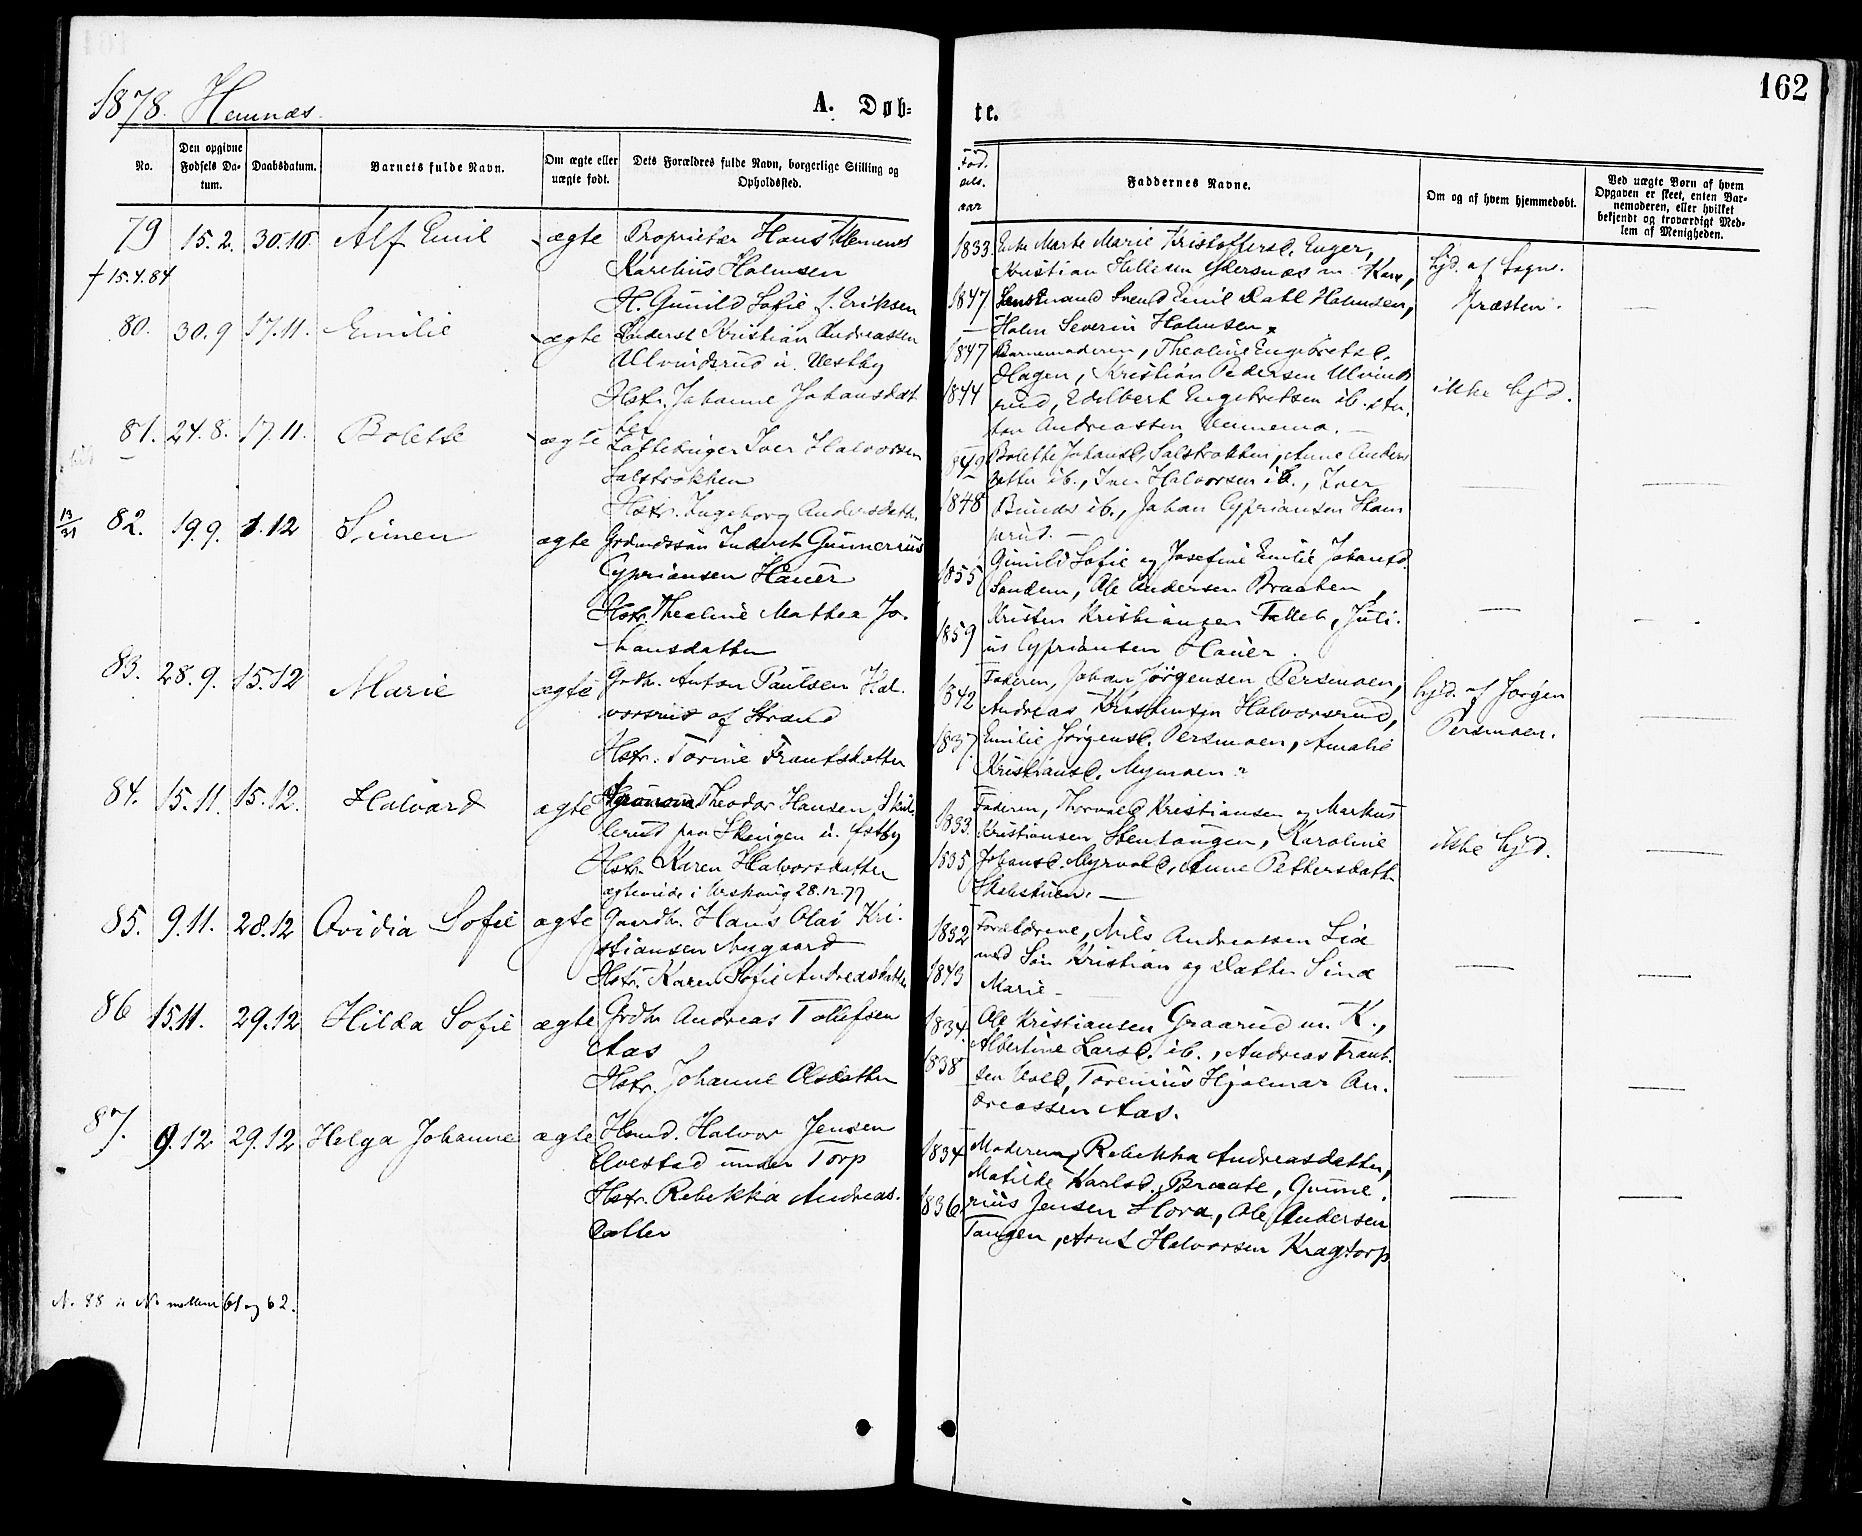 162
1878. Hemnæs.
A. Døb-
te.
No.
Den opgivne Fødsels Da-tum.
Daabsdatum.
Barnets fulde Navn.
Om ægte eller uægte født.
Dets Forældres fulde Navn, borgerlige Stilling og Opholdssted.
Fød. sels. aar
Faddernes Navne.
Om og af hvem hjemmedøbt.
Ved uægte Børn af hvem Opgaven er skeet, enten Bar-nemoderen, eller hvilket bekjendt og troværdigt Med-lem af Menigheden.
79 15.2. 30.10. Alf Emil ægte Proprietær Hans Klemenes
† 15.4.84 Karelius Holmsen
H. Gunild Sofie f. Eriksen
1833. Enke Marte Marie Kristoffersd. Enger,
Kristian Hillesen m Kone,
1847 Svend Emil Dahl Holmsen,
Holm Severin Holmsen
hjd. af Sogne-
præsten.
80. 30.9 17.11. Emilie ægte Inderst Kristian Andreassen
Ulvindsrud u. Vestby
Hstr. Johanne Johansdat
ter
1847 Barnemoderen, Thealine Engebretsd.
Hagen, Kristian Pedersen Ulvinds
1844 rud, Edelbert Engebretsen ib. An-
ton Andreassen
ikke hjd.
81. 24.8. 17.11. Bolette ægte Iver Halvorsen
Salstrokken
Hstr. Ingeborg Andersdatter
1849 Bolette Johansd. Salstrokken, Anne Anders
datter ib., Iver Halvorsen ib., Iver
1848 ib., Johan Cypriansen Skam
prud. —
—
82. 19.9. 1.12 Simen ægte Grdmdssøn Inderst Gunnerius
Cypriansen Hauer
Hstr. Thealine Mathea Jo-
hansdatter
1855 Gunild Sofie og Josefine Emilie Johansd.
Sandem, Ole Andersen Braaten,
1859 Kristen Kristiansen, Juli-
us Cypriansen Hauer.
—
83. 28.9. 15.12 Marie ægte Grdbr. Anton Paulsen Hal-
vorsrud af Strand
Hstr. Torine Frantsdatter
1842 Faderen, Johan Jörgensen Persmoen,
Andreas Kristensen Halvorsrud,
1837. Emilie Jörgensd. Persmoen, Amalie
Kristiansd. Mymoen
hjd. af Jørgen
Persmoen.
—
84. 15.11. 15.12. Halvard ægte Theodor Hansen
paa u. Fosby
Hstr. Karen Halvorsdatter
ægteviede i 28.12.77
1833. Faderen, Thorvald Kristiansen og Markus
Kristiansen Stentangen, Karoline
1835 Johansd. Myrvold, Anne Pettersdatt.
ikke hjd.
—
85. 9.11. 28.12 Ovidia Sofie ægte Gaardbr. Hans Olai Kri-
stiansen Nygaard
Hstr. Karen Sofie Andreasdatter
1832 Forældrene, Nils Andreassen Lia
1843 med Søn Kristian og Datter Sina
Marie —
— —
86 15.11. 29.12 Hilda Sofie ægte Grdbr. Andreas Tollefsen
Aas
Hstr. Johanne Olsdatter
1834. Ole Kristiansen Graarud m. K.,
Albertine Larsd. ib., Andreas Frant-
1838 sen Vold, Torenius Hjalmar An-
dreassen Aas.
— —
87. 9.12 29.12 Helga Johanne ægte Hmd. Halvor Jensen
Elvestad under Torp
Hstr. Rebekka Andreas-
datter
1834 Moderen, Rebekka Andreasdatter,
Matilde Karlsd. Braate, Gunne-
1836. rius Jensen Hora, Ole Andersen
Tangen, Arnt Halvorsen Kragtorp
— —
N. 88 mellem 61 og 62.